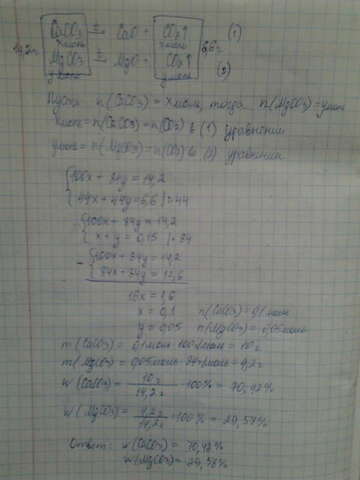 CaCO3 =t CaO + CO2↑ (1)
14,2г
x моль x моль 6,6г
MgCO3 =t MgO + CO2↑
y моль y моль (2)
Пусть n(CaCO3) = x моль, тогда n(MgCO3) = y моль
x моль = n(CaCO3) = n(CO2) в (1) уравнении
y моль = n(MgCO3) = n(CO2) в (2) уравнении
{100x + 84y = 14,2
{44x + 44y = 6,6 | : 44
{100x + 84y = 14,2
{x + y = 0,15 | · 84
- {100x + 84y = 14,2
{84x + 84y = 12,6
16x = 1,6
x = 0,1 n(CaCO3) = 0,1 моль
y = 0,05 n(MgCO3) = 0,05 моль
m(CaCO3) = 0,1 моль · 100 г/моль = 10 г
m(MgCO3) = 0,05 моль · 84 г/моль = 4,2 г
w(CaCO3) = 10 г / 14,2 г · 100% = 70,42%
w(MgCO3) = 4,2 г / 14,2 г · 100% = 29,58%
Ответ: w(CaCO3) = 70,42%
w(MgCO3) = 29,58%